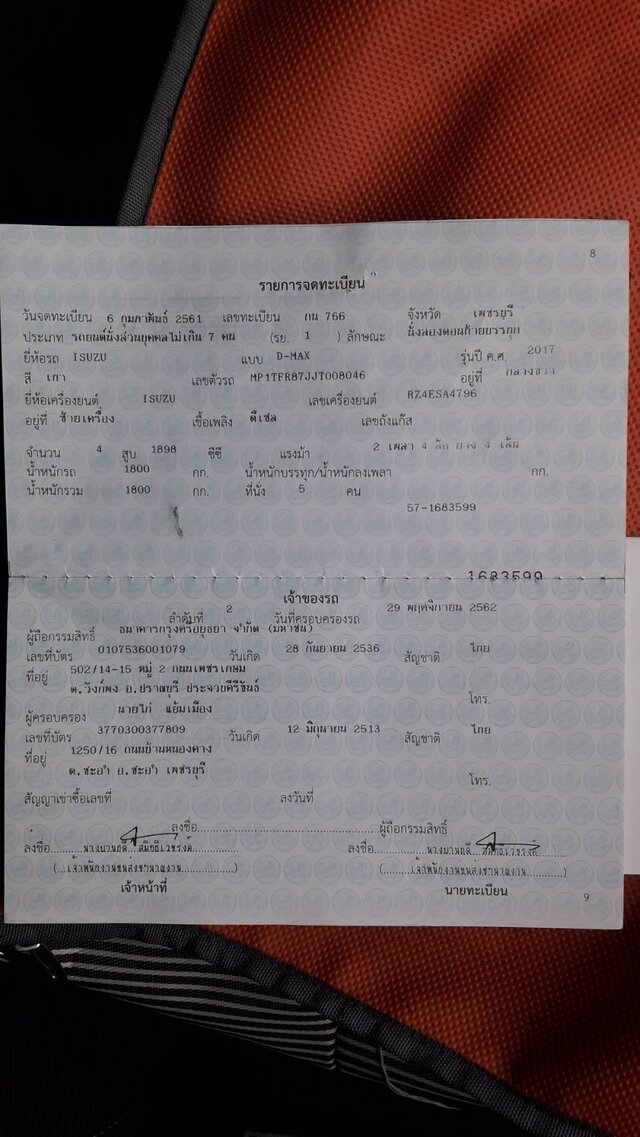 8
รายการจดทะเบียน
วันจดทะเบียน 6 กุมภาพันธ์ 2561 เลขทะเบียน กน 766 จังหวัด เพชรบุรี
ประเภท รถยนต์นั่งส่วนบุคคลไม่เกิน 7 คน (รย. 1 ) ลักษณะ นั่งสองตอนท้ายบรรทุก
ยี่ห้อรถ ISUZU แบบ D-MAX รุ่นปี ค.ศ. 2017
สี เทา เลขตัวรถ MP1TFR87JJT008046 อยู่ที่ กลางขวา
ยี่ห้อเครื่องยนต์ ISUZU เลขเครื่องยนต์ RZ4ESA4796
อยู่ที่ ซ้ายเครื่อง เชื้อเพลิง ดีเซล เลขถังแก๊ส
จำนวน 4 สูบ 1898 ซีซี แรงม้า 2 เพลา 4 ล้อ ยาง 4 เส้น
น้ำหนักรถ 1800 กก. น้ำหนักบรรทุก/น้ำหนักลงเพลา กก.
น้ำหนักรวม 1800 กก. ที่นั่ง 5 คน
57-1683599
1683599
เจ้าของรถ
ลำดับที่ 2 วันที่ครอบครองรถ 29 พฤศจิกายน 2562
ผู้ถือกรรมสิทธิ์ ธนาคารกรุงศรีอยุธยา จำกัด (มหาชน)
เลขที่บัตร 0107536001079 วันเกิด 28 กันยายน 2536 สัญชาติ ไทย
ที่อยู่ 502/14-15 หมู่ 2 ถนนเพชรเกษม
ต.วังก์พง อ.ปราณบุรี ประจวบคีรีขันธ์
โทร.
ผู้ครอบครอง นายไก่ แย้มเมือง
เลขที่บัตร 3770300377809 วันเกิด 12 มิถุนายน 2513 สัญชาติ ไทย
ที่อยู่ 1250/16 ถนนบ้านหนองคาง
ต.ชะอำ อ.ชะอำ เพชรบุรี
โทร.
สัญญาเช่าซื้อเลขที่ ลงวันที่
ลงชื่อ ผู้ถือกรรมสิทธิ์
ลงชื่อ ลงชื่อ
(...เจ้าพนักงานขนส่งชำนาญงาน...) (...เจ้าพนักงานขนส่งชำนาญงาน...)
เจ้าหน้าที่ นายทะเบียน
9